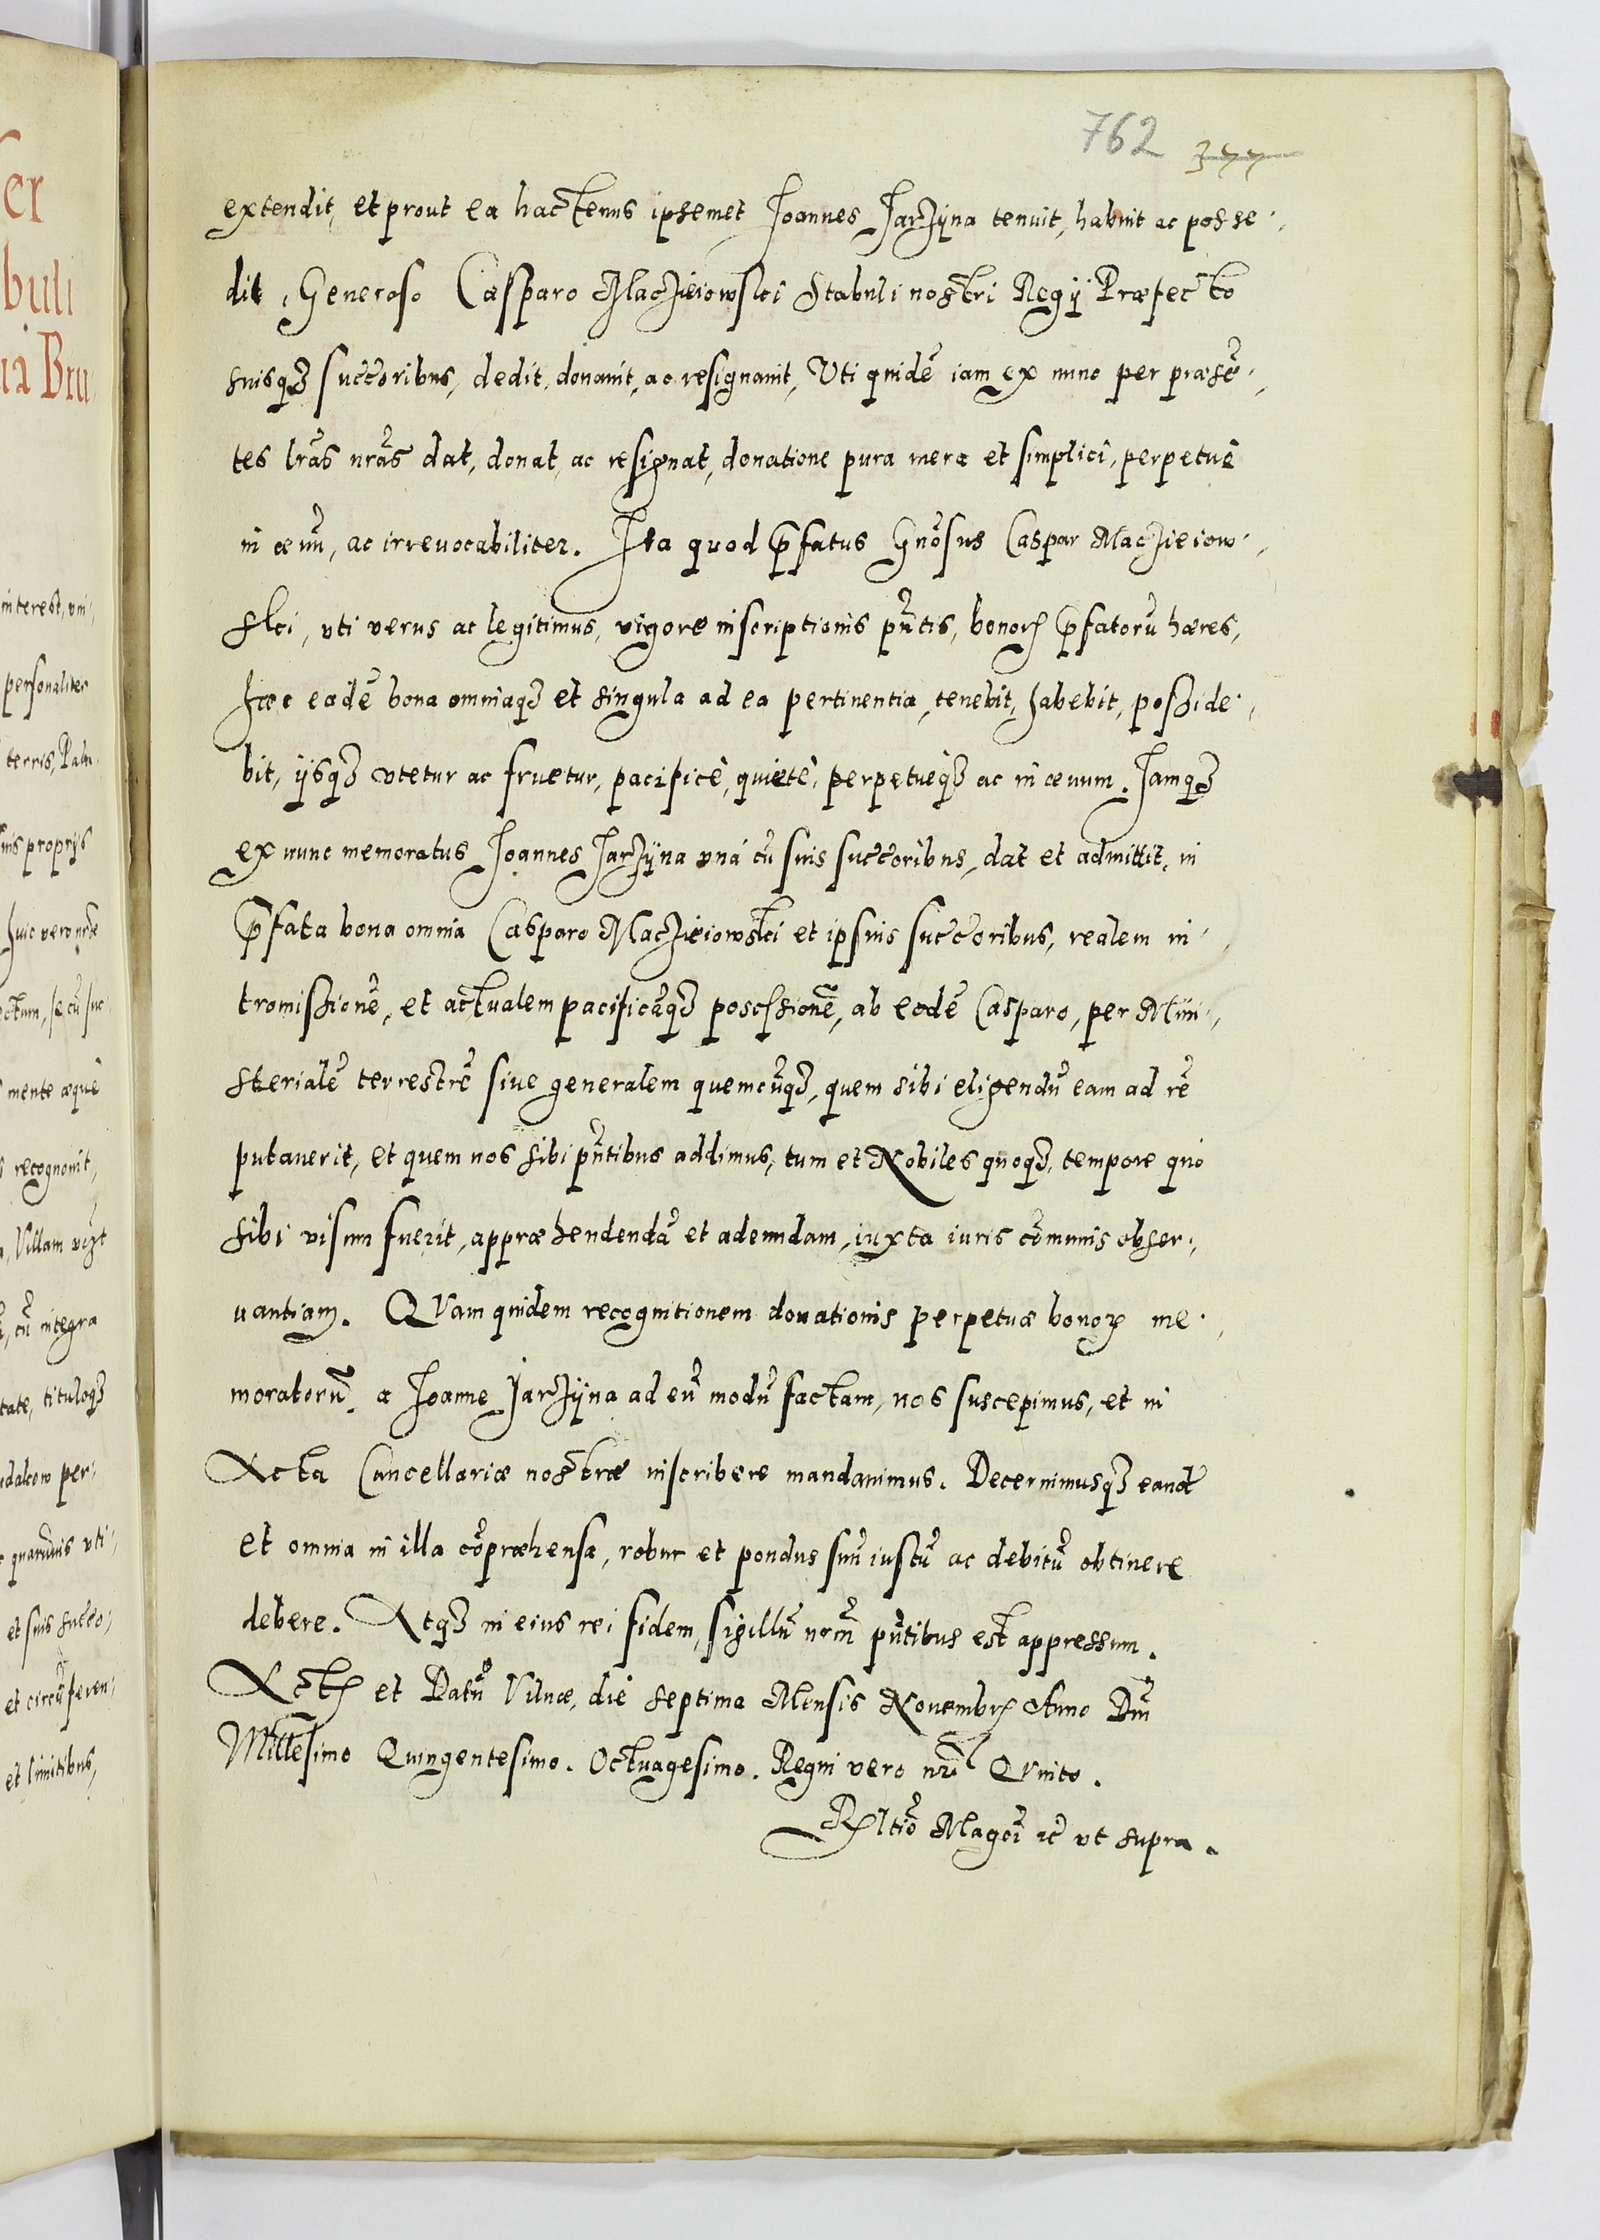 762 377
extendit, et prout ea hactenus ipsemet Joannes Jarzyna tenuit, habuit ac posse,
dit, Generoso Casparo Maczieiowski Stabuli nostri Regij Præfecto
suisq3 succoribus, dedit, donauit, ac resignauit, Vti quidē iam ex nunc per præsē,
tes lrās nrās dat, donat, ac resignat, donatione pura mera et simplici, perpetuè
in æuū, ac irreuocabiliter. Ita quod p̄fatus Gnōsus Caspar Maczieiow,
ski, vti verus ac legitimus, vigore inscriptionis pn̄tis, bonorꝝ p̄fatorū hæres,
hæc eadē bona omniaq3 et singula ad ea pertinentia, tenebit, habebit, posside,
bit, ijsq3 vtetur ac fruetur, pacificè, quietè, perpetueq3 ac in æuum. Jamq3
ex nunc memoratus Joannes Jarzyna vná cū suis succoribus, dat et admittit, in
p̄fata bona omnia Casparo Maczieiowski et ipsius succoribus, realem in,
tromissionē, et actualem pacificāq3 possessionē, ab eodē Casparo, per Mini,
sterialē terrestrē siue generalem quemcūq3, quem sibi eligendū eam ad rē
putauerit, et quem nos sibi pn̄tibus addimus, tum et Nobiles quoq3, tempore quo
sibi visum fuerit, appræhendendā et adeundam, iuxta iuris cōmunis obser,
uantiam. QVam quidem recognitionem donationis perpetuæ bonoꝝ me,
moratorū, a Joanne Jarzyna ad eū modū factam, nos suscepimus, et in
Acta Cancellariæ nostræ inscribere mandauimus. Decernimusq3 eandē
et omnia in illa cōpræhensa, robur et pondus suū iustū ac debitū obtinere
debere. Atq3 in eius rei fidem, sigillū nrm̄ pn̄tibus est appressum.
Actꝭ et Datū Vilnæ, die septima Mensis Nouembrꝭ Anno Dn̄i
Millesimo Quingentesimo. Octuagesimo. Regni vero nrī QVinto.
Rꝭltio Magci ic̄ vt supra.